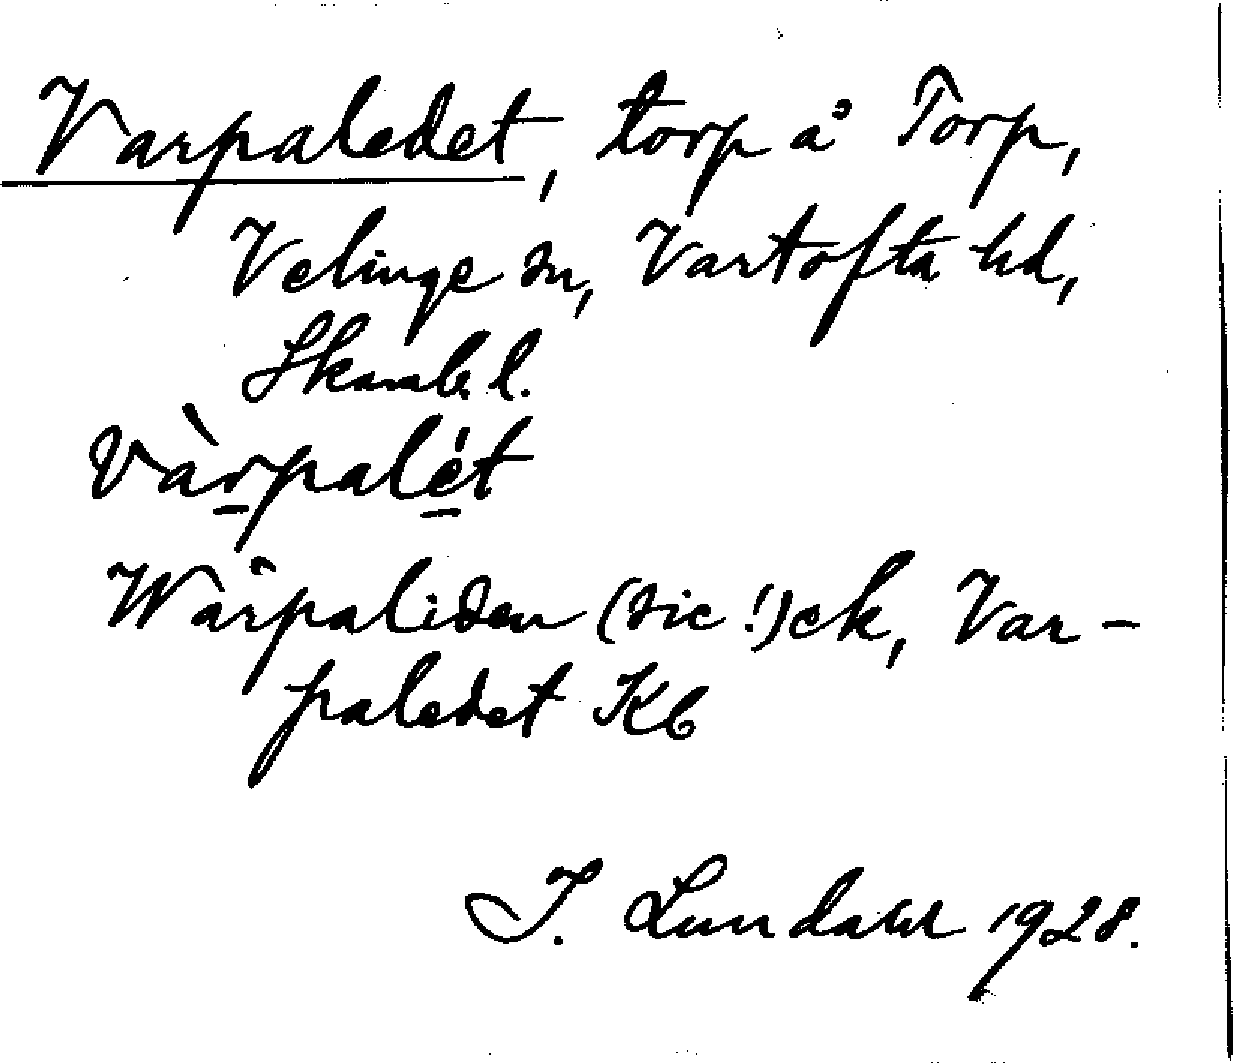 Varpaledet, torp å Torp,
Velinge sn, Vartofta hd,
Skarab. l.
Vàrpalét
Wärpaliden (sic!) ek, Var-
paledet Kb
I. Lundahl 1928.